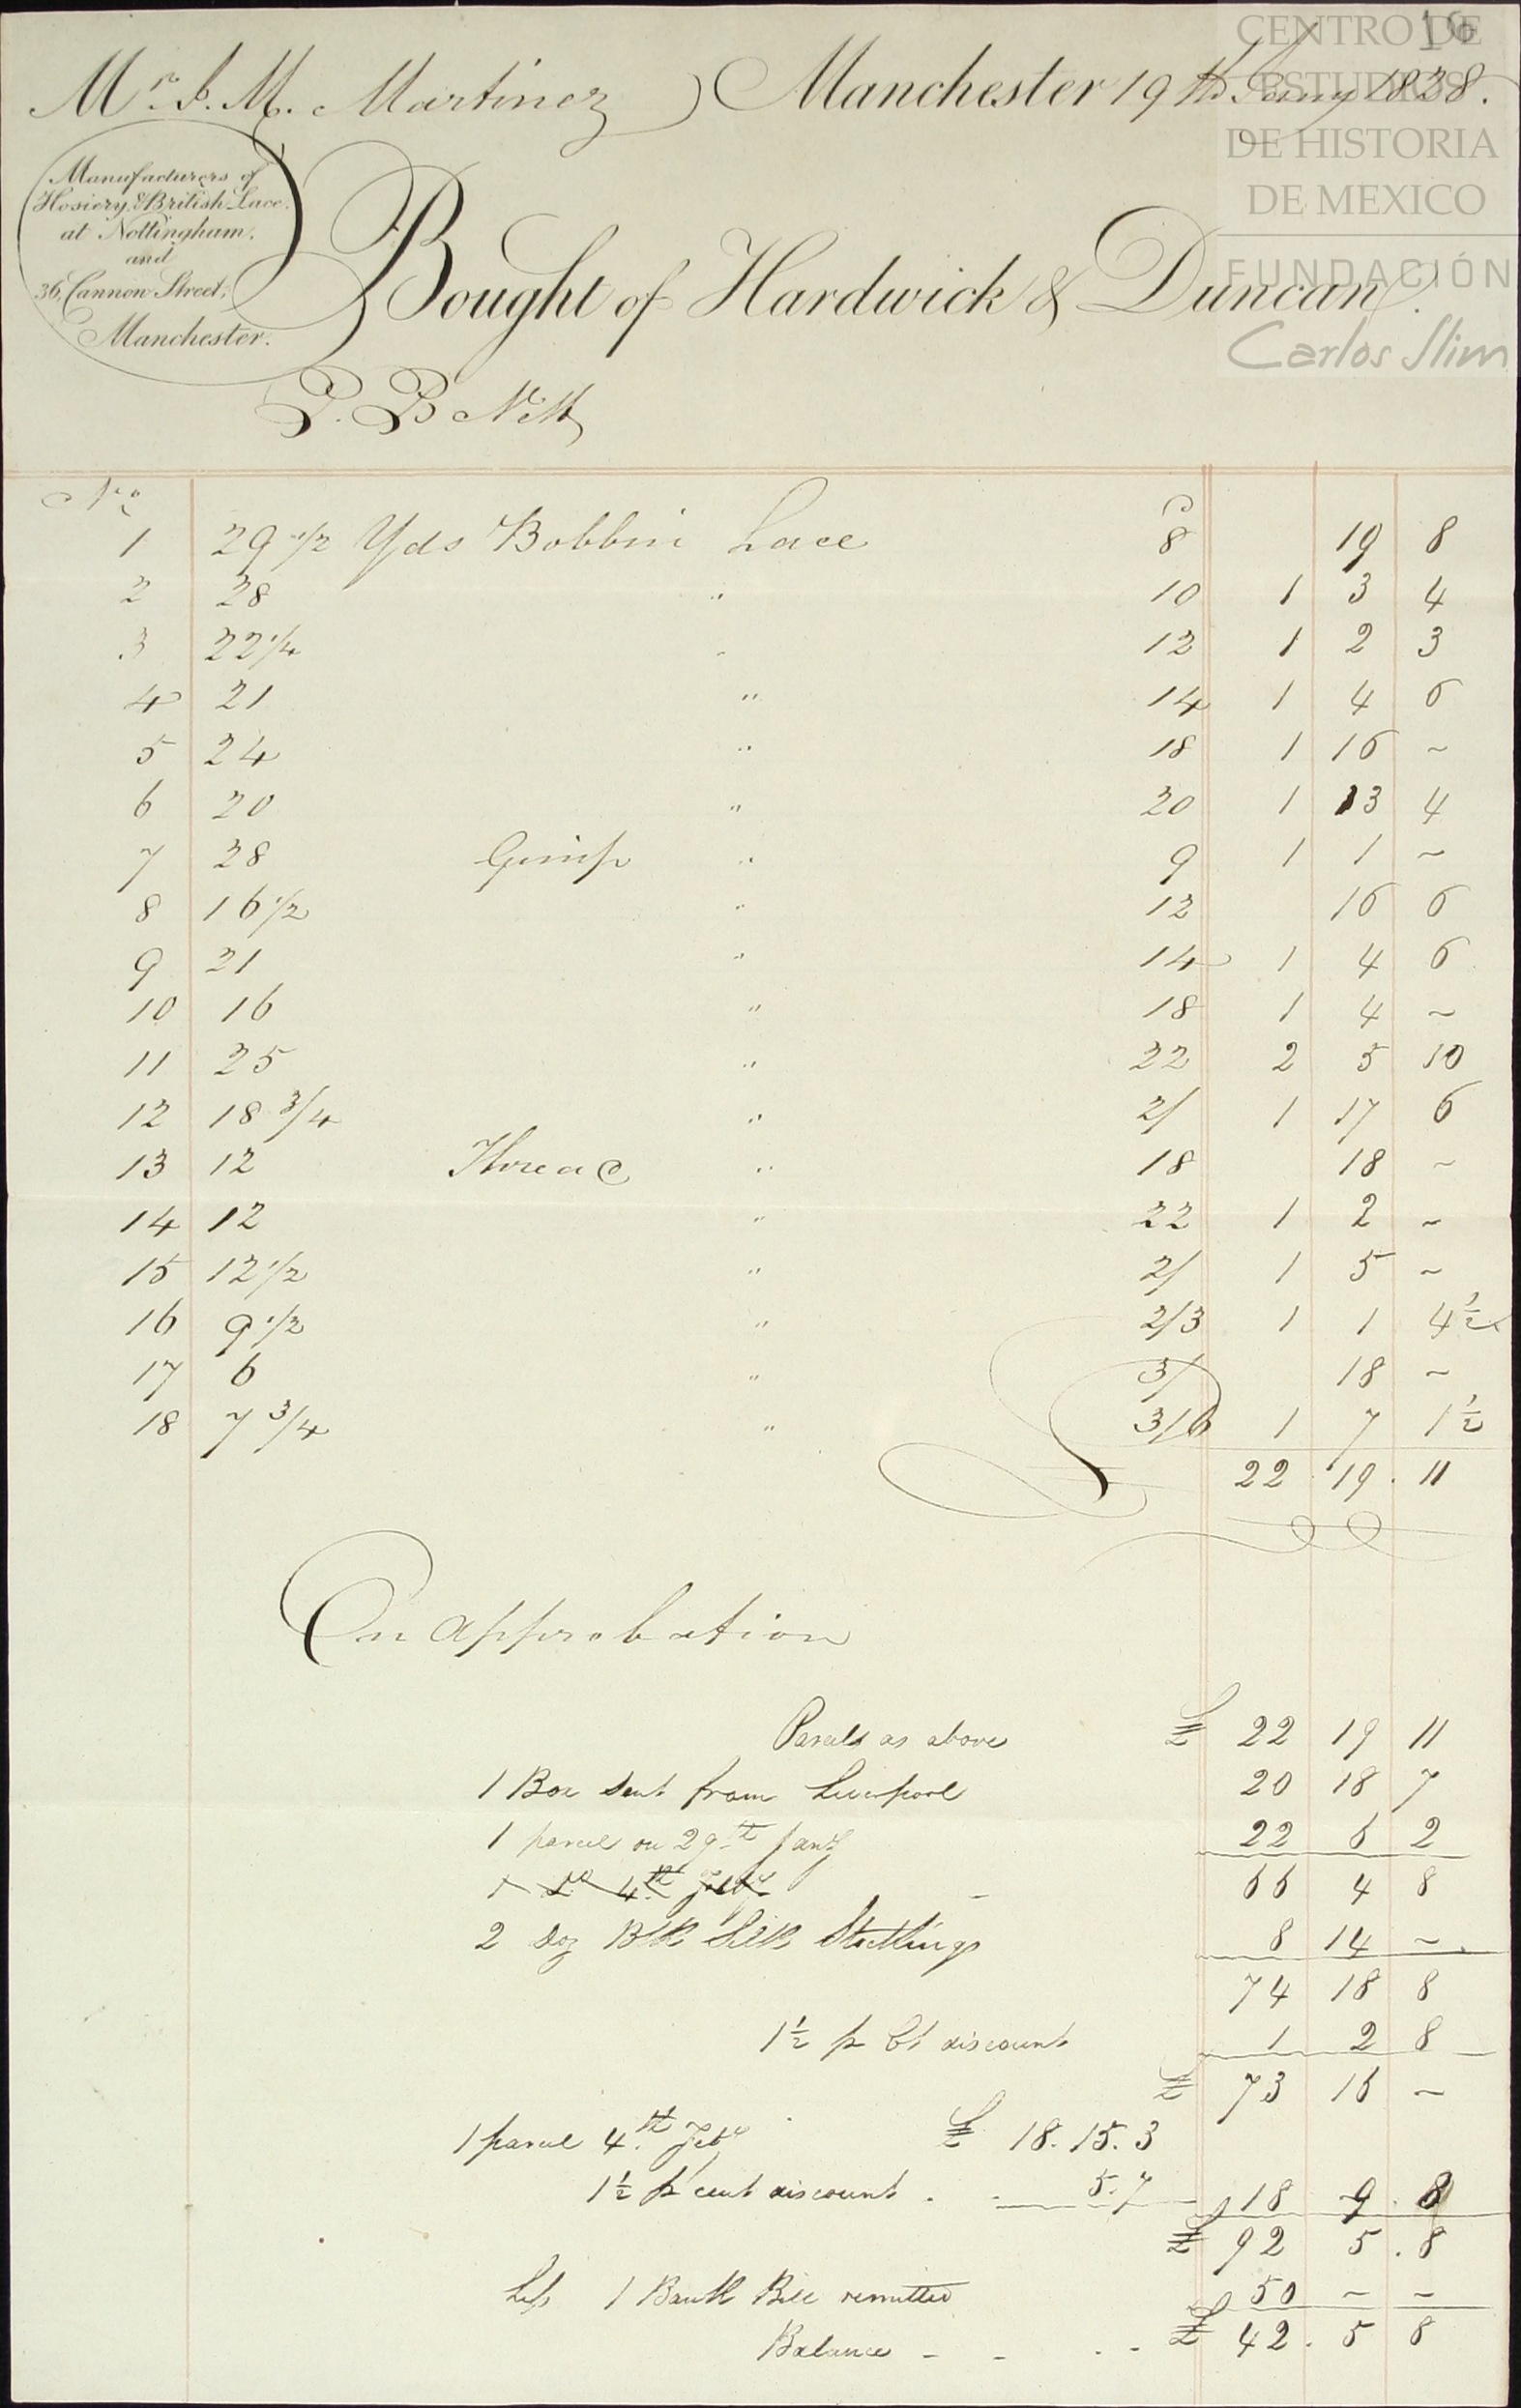 16
CENTRO DE
ESTUDIOS
DE HISTORIA
DE MEXICO
FUNDACIÓN
Carlos Slim
Mr. J. M. Martinez Manchester 19th Jany 1838.
Manufacturers of
Hosiery & British Lace.
at Nottingham.
and
36, Cannon Street,
Manchester.
Bought of Hardwick & Duncan.
P. B Nett
No
1 29 1/2 Yds Bobbin Lace 8 19 8
2 28 " 10 1 3 4
3 22 1/4 " 12 1 2 3
4 21 " 14 1 4 6
5 24 " 18 1 16 ~
6 20 " 20 1 13 4
7 28 Gimp " 9 1 1 ~
8 16 1/2 " 12 16 6
9 21 " 14 1 4 6
10 16 " 18 1 4 ~
11 25 " 22 2 5 10
12 18 3/4 " 2/ 1 17 6
13 12 Thread " 18 18 ~
14 12 " 22 1 2 ~
15 12 1/2 " 2/ 1 5 ~
16 9 1/2 " 2/3 1 1 4 1/2
17 6 " 3/ 18 ~
18 7 3/4 " 3/6 1 7 1 1/2
22 . 19 . 11
On approbation
Parcels as above £ 22 19 11
1 Box sent from Liverpool 20 18 7
1 parcel on 29th Jany 22 6 2
1 Do 4th Feby -
66 4 8
2 Doz Blk Silk Stockings 8 14 ~
74 18 8
1 1/2 p Ct discount 1 2 8
£ 73 16 ~
1 parcel 4th Feby £ 18. 15. 3
1 1/2 p cent discount . - 5. 7 18 9 . 8
£ 92 5 . 8
Less 1 Bank Bill remitted 50 - -
Balance - - . - £ 42 . 5 8